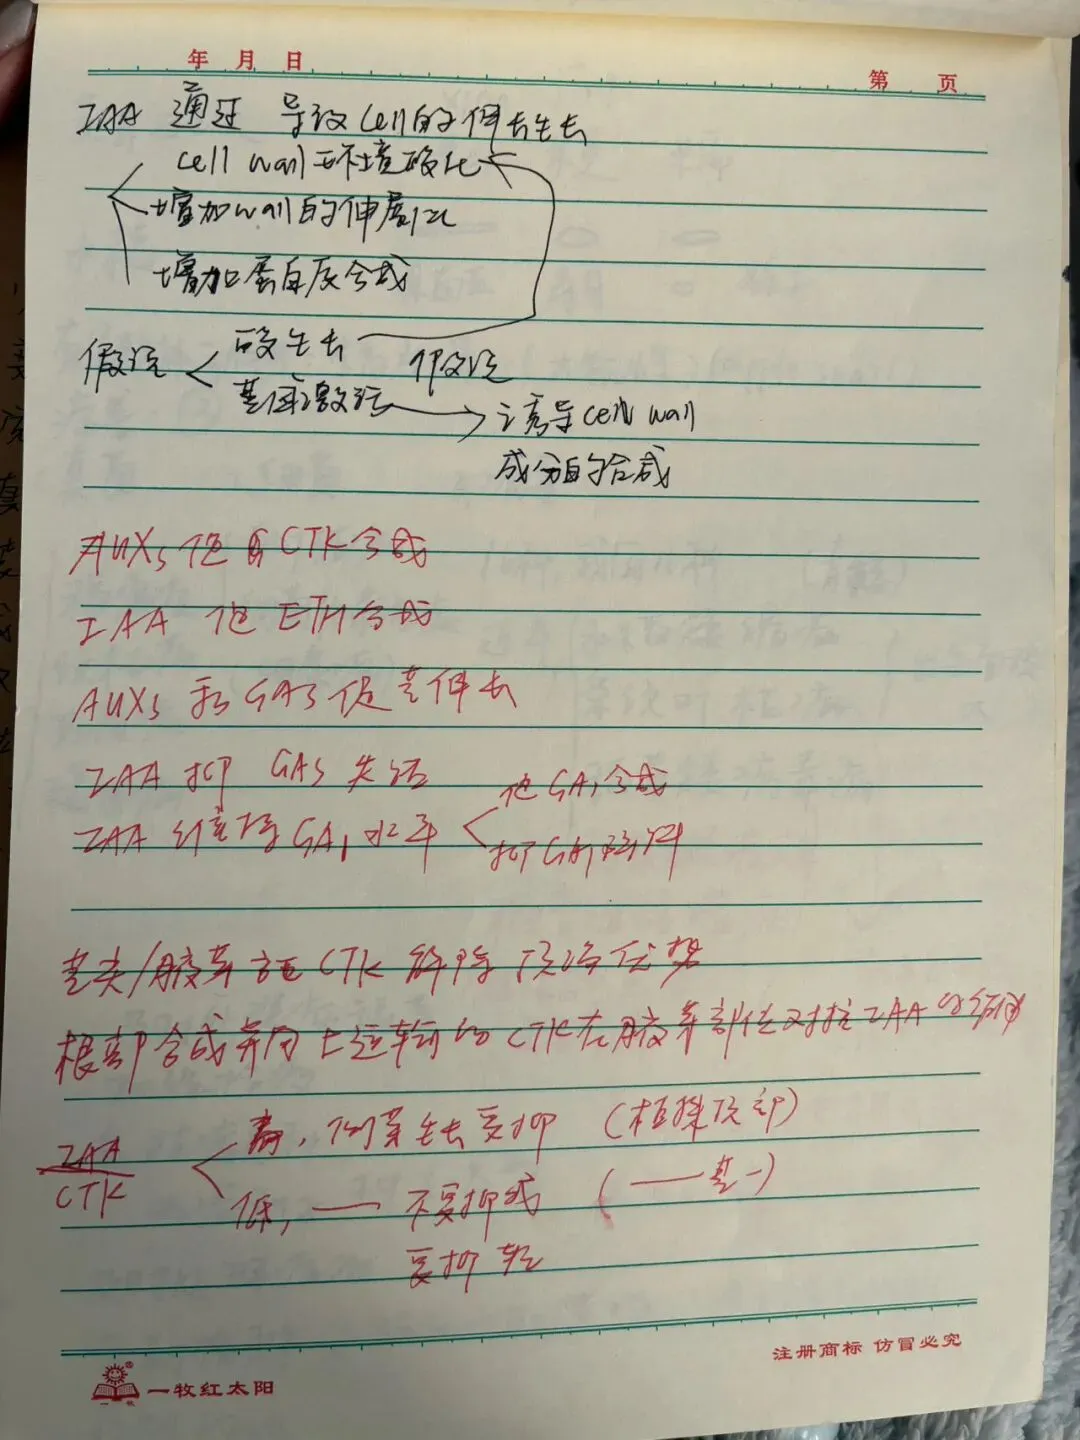 年 月 日
第 页
IAA 通过 导致cell的伸长生长
cell wall环境酸化
增加wall的伸展性
增加蛋白质合成
假说
酸生长 假说
基因激活 → 诱导cell wall
成分的合成
AUXs 促 CTK合成
IAA 促 ETH合成
AUXs 和 GAs 促茎伸长
IAA 抑 GAs 失活
IAA 维持 GA₁水平
促GA₁合成
抑GA₁降解
茎尖/腋芽 CTK 解除 顶端优势
根部合成并向上运输的CTK在腋芽部位对抗IAA的
IAA
CTK
高, 侧芽生长受抑 (植株顶部)
低, —— 不受抑或 (——基—)
受抑轻
一牧红太阳
注册商标 仿冒必究